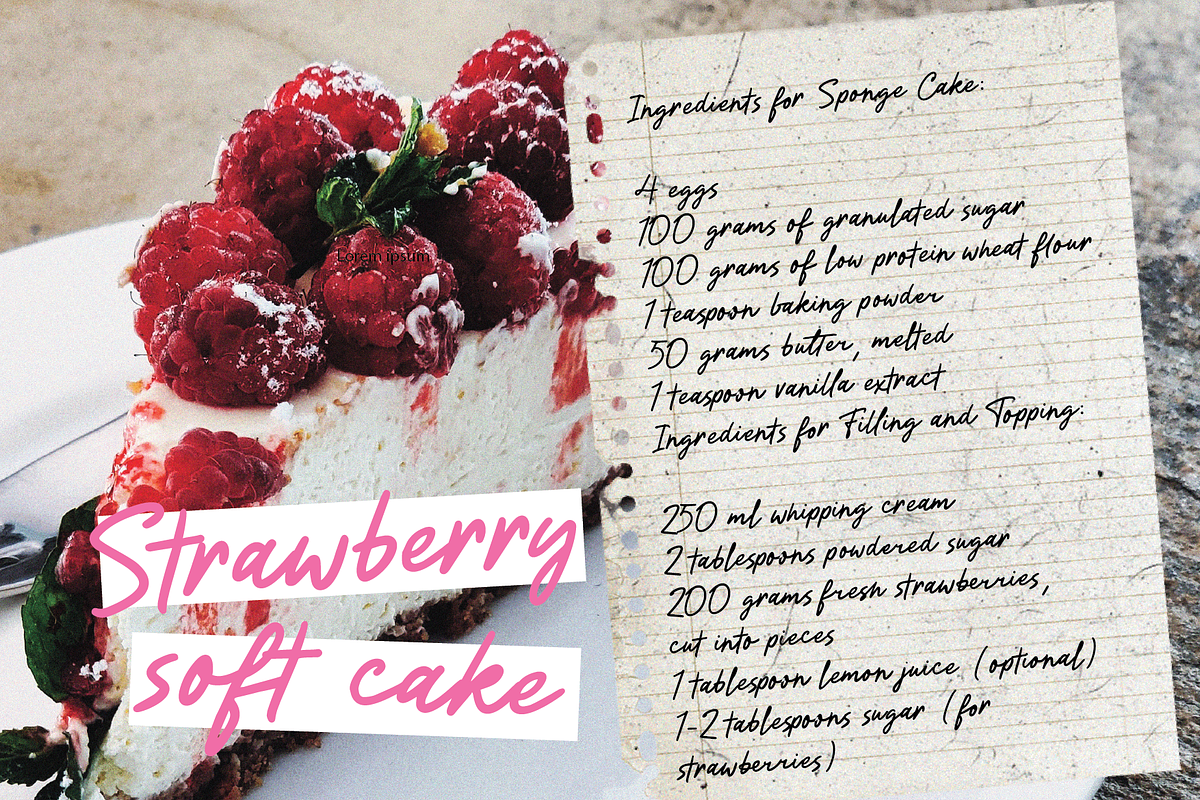 Lorem ipsum
Strawberry
soft cake
Ingredients for Sponge Cake:
4 eggs
100 grams of granulated sugar
100 grams of low protein wheat flour
1 teaspoon baking powder
50 grams butter, melted
1 teaspoon vanilla extract
Ingredients for Filling and Topping:
250 ml whipping cream
2 tablespoons powdered sugar
200 grams fresh strawberries,
cut into pieces
1 tablespoon lemon juice (optional)
1-2 tablespoons sugar (for
strawberries)